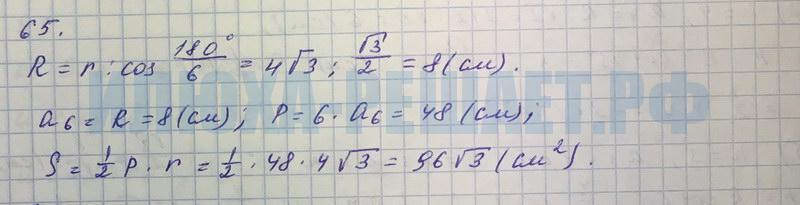 65.
R = r : cos 180°/6 = 4√3 : √3/2 = 8 (см).
a₆ = R = 8 (см); P = 6 · a₆ = 48 (см);
S = 1/2 P · r = 1/2 · 48 · 4√3 = 96√3 (см²).
ИЛЮХА-РЕШАЕТ.РФ